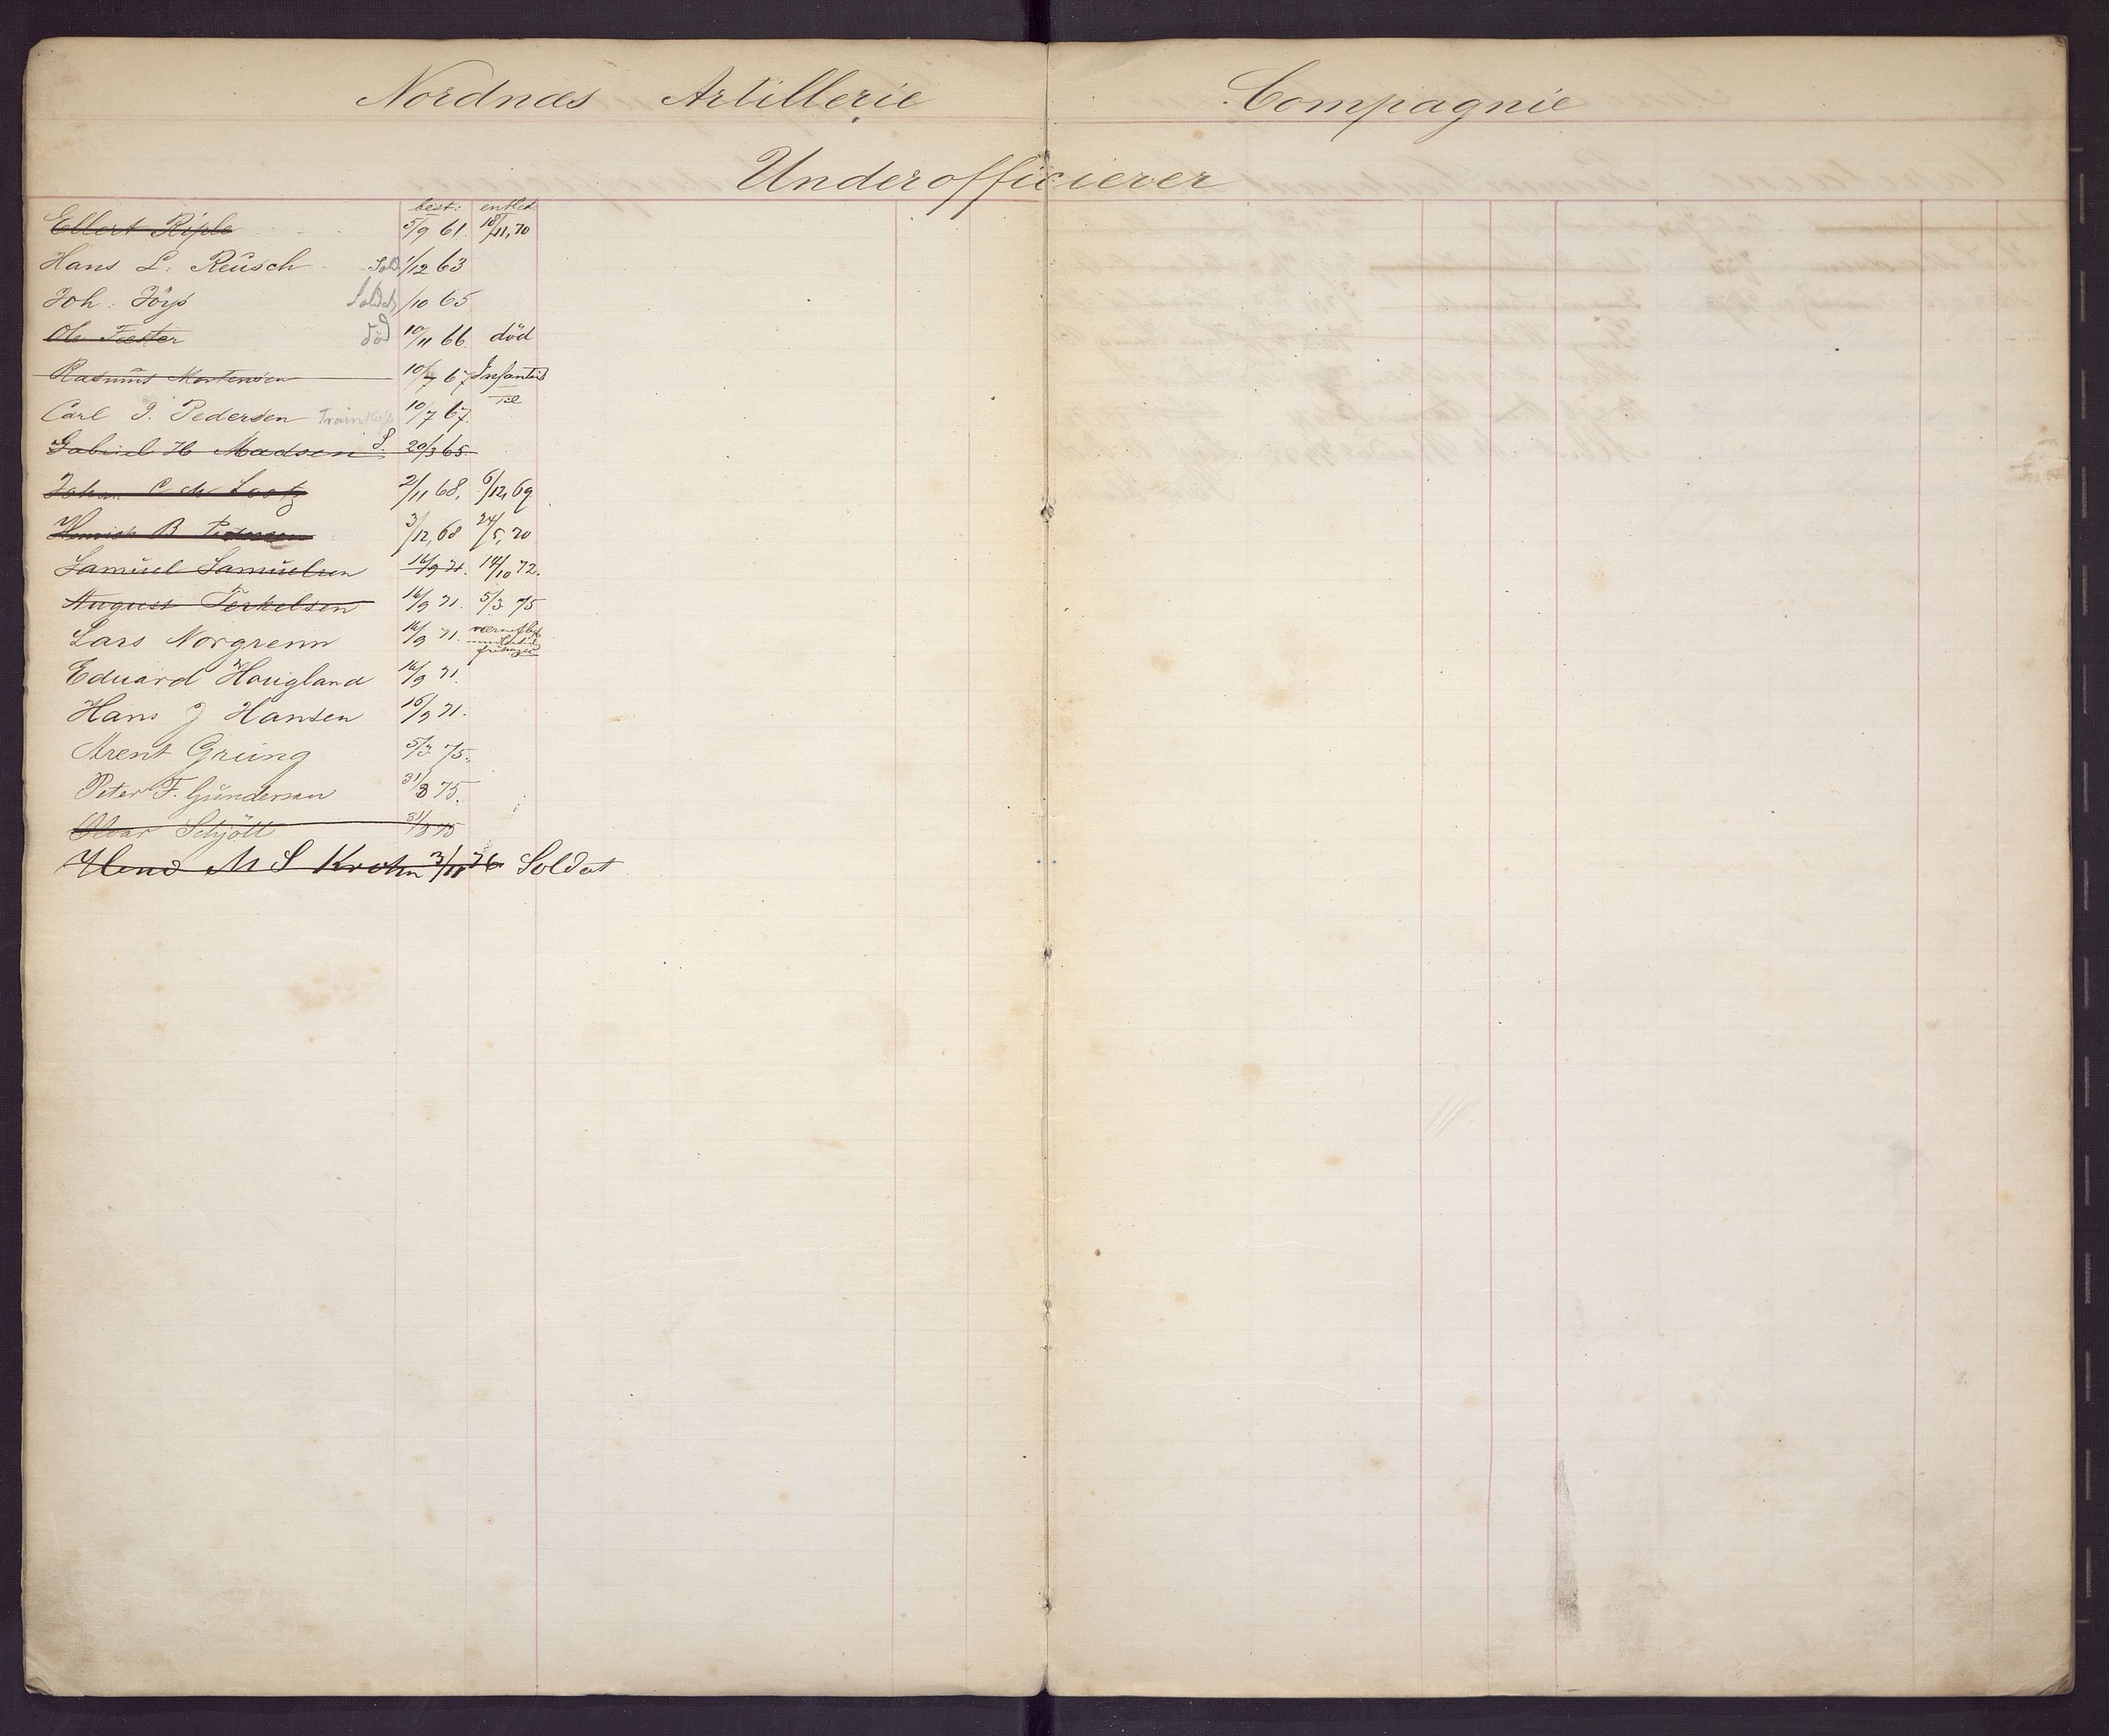 Nordnæs Artillerie Compagnie
Underofficierer
best: entled:
Ellert Riple 5/9 61. 18/11, 70
Hans L. Reusch Sold 1/12 63
Joh. Jöys Soldat /10 65
Ole Fæster död 10/11 66. död
Rasmus Mortensen 10/7 67 Infanterie
Carl J. Pedersen 10/7 67.
Gabriel H Madsen S. 20/3 65.
Johan C M Lootz 2/11 68. 6/12, 69
Henrich B Pedersen 3/12, 68 24/5, 70
Samuel Samuelsen 16/9 71. 14/10 72.
August Terkelsen 16/9 71. 5/3 75
Lars Norgrenn 16/9 71.
Eduard Hougland 16/9 71.
Hans J Hansen 16/9 71.
Arent Grung 5/3 75.
Peter F. Gundersen 31/3 75.
Olvar Schjött 31/3 75
Hend M S Krohn 3/11 76 Soldat